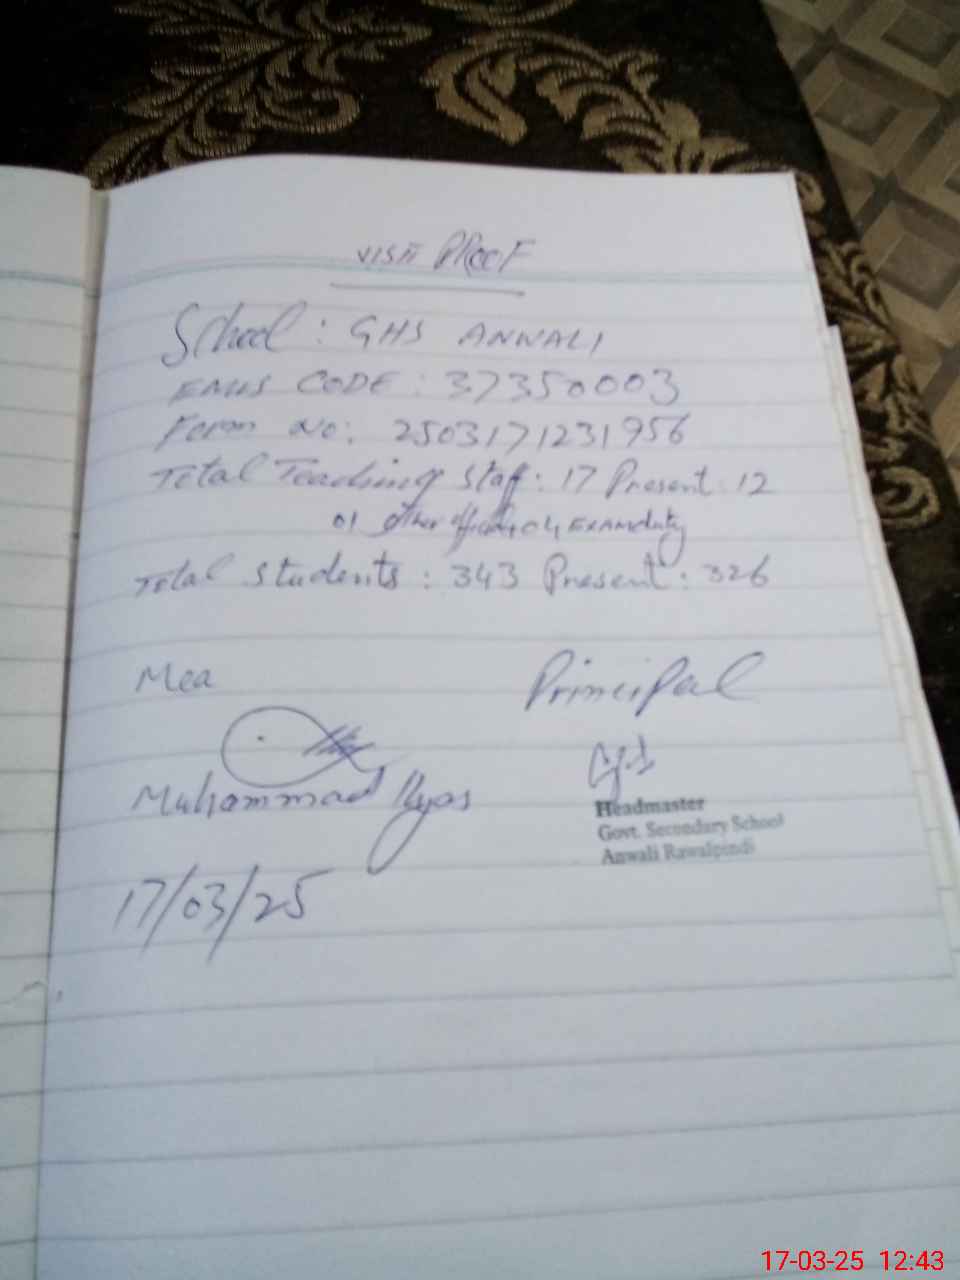 VISIT PROOF
School : GHS ANWALI
EMIS CODE : 37350003
Form No: 2503171231956
Total Teaching Staff : 17 Present : 12
01 other official, 04 EXAM duty
Total Students : 343 Present : 326
Mea Principal
Muhammad Ilyas
Headmaster
Govt. Secondary School
Anwali Rawalpindi
17/03/25
17-03-25 12:43